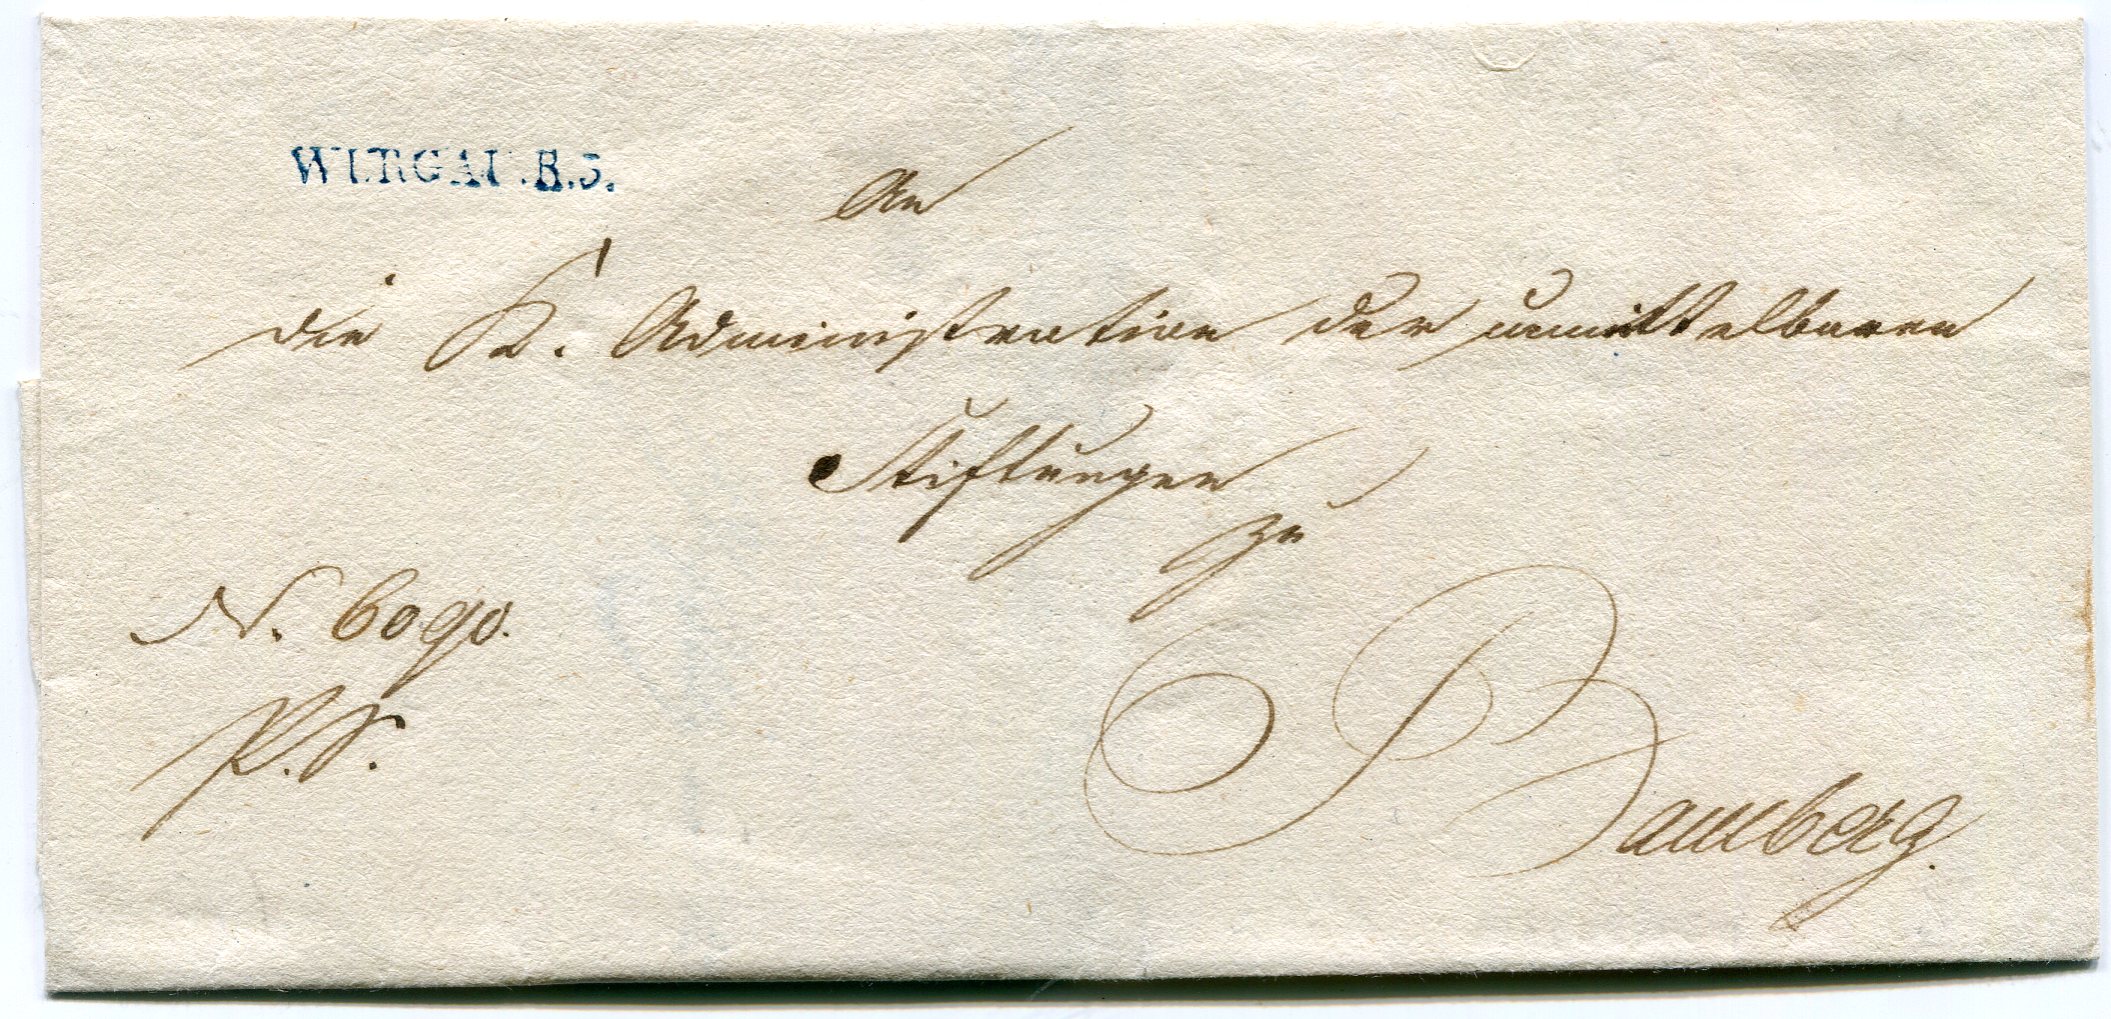 WURGAU.R.3.
An
die K. Administration der unmittelbaren
Stiftungen
zu
N. 6090.
R.S.
Bamberg.